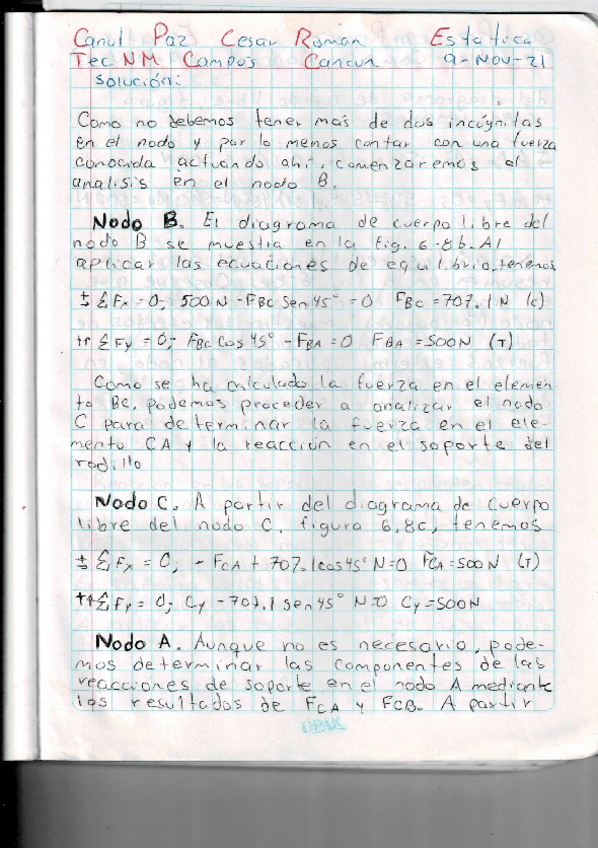 Canul Paz Cesar Roman Estatica
TecNM Campus Cancun 9-Nov-21
Solución:
Como no debemos tener mas de dos incógnitas
en el nodo y por lo menos contar con una fuerza
conocida actuando ahi, comenzaremos el
analisis en el nodo B.
Nodo B. El diagrama de cuerpo libre del
nodo B se muestra en la Fig. 6-8b. Al
aplicar las ecuaciones de equilibrio, tenemos
±→ ΣFx = 0; 500 N - FBC Sen 45° = 0 FBC = 707.1 N (c)
+↑ ΣFy = 0; FBC Cos 45° - FBA = 0 FBA = 500N (T)
Como se ha calculado la fuerza en el elemen-
to BC, podemos proceder a analizar el nodo
C para determinar la fuerza en el ele-
mento CA y la reacción en el soporte del
rodillo
Nodo C. A partir del diagrama de cuerpo
libre del nodo C, figura 6.8c, tenemos
±→ ΣFx = 0; - FCA + 707.1 cos 45° N=0 FCA = 500N (T)
+↑ ΣFy = 0; Cy - 707.1 sen 45° N=0 Cy = 500N
Nodo A. Aunque no es necesario, pode-
mos determinar las componentes de las
reacciones de soporte en el nodo A mediante
los resultados de FCA y FCB. A partir